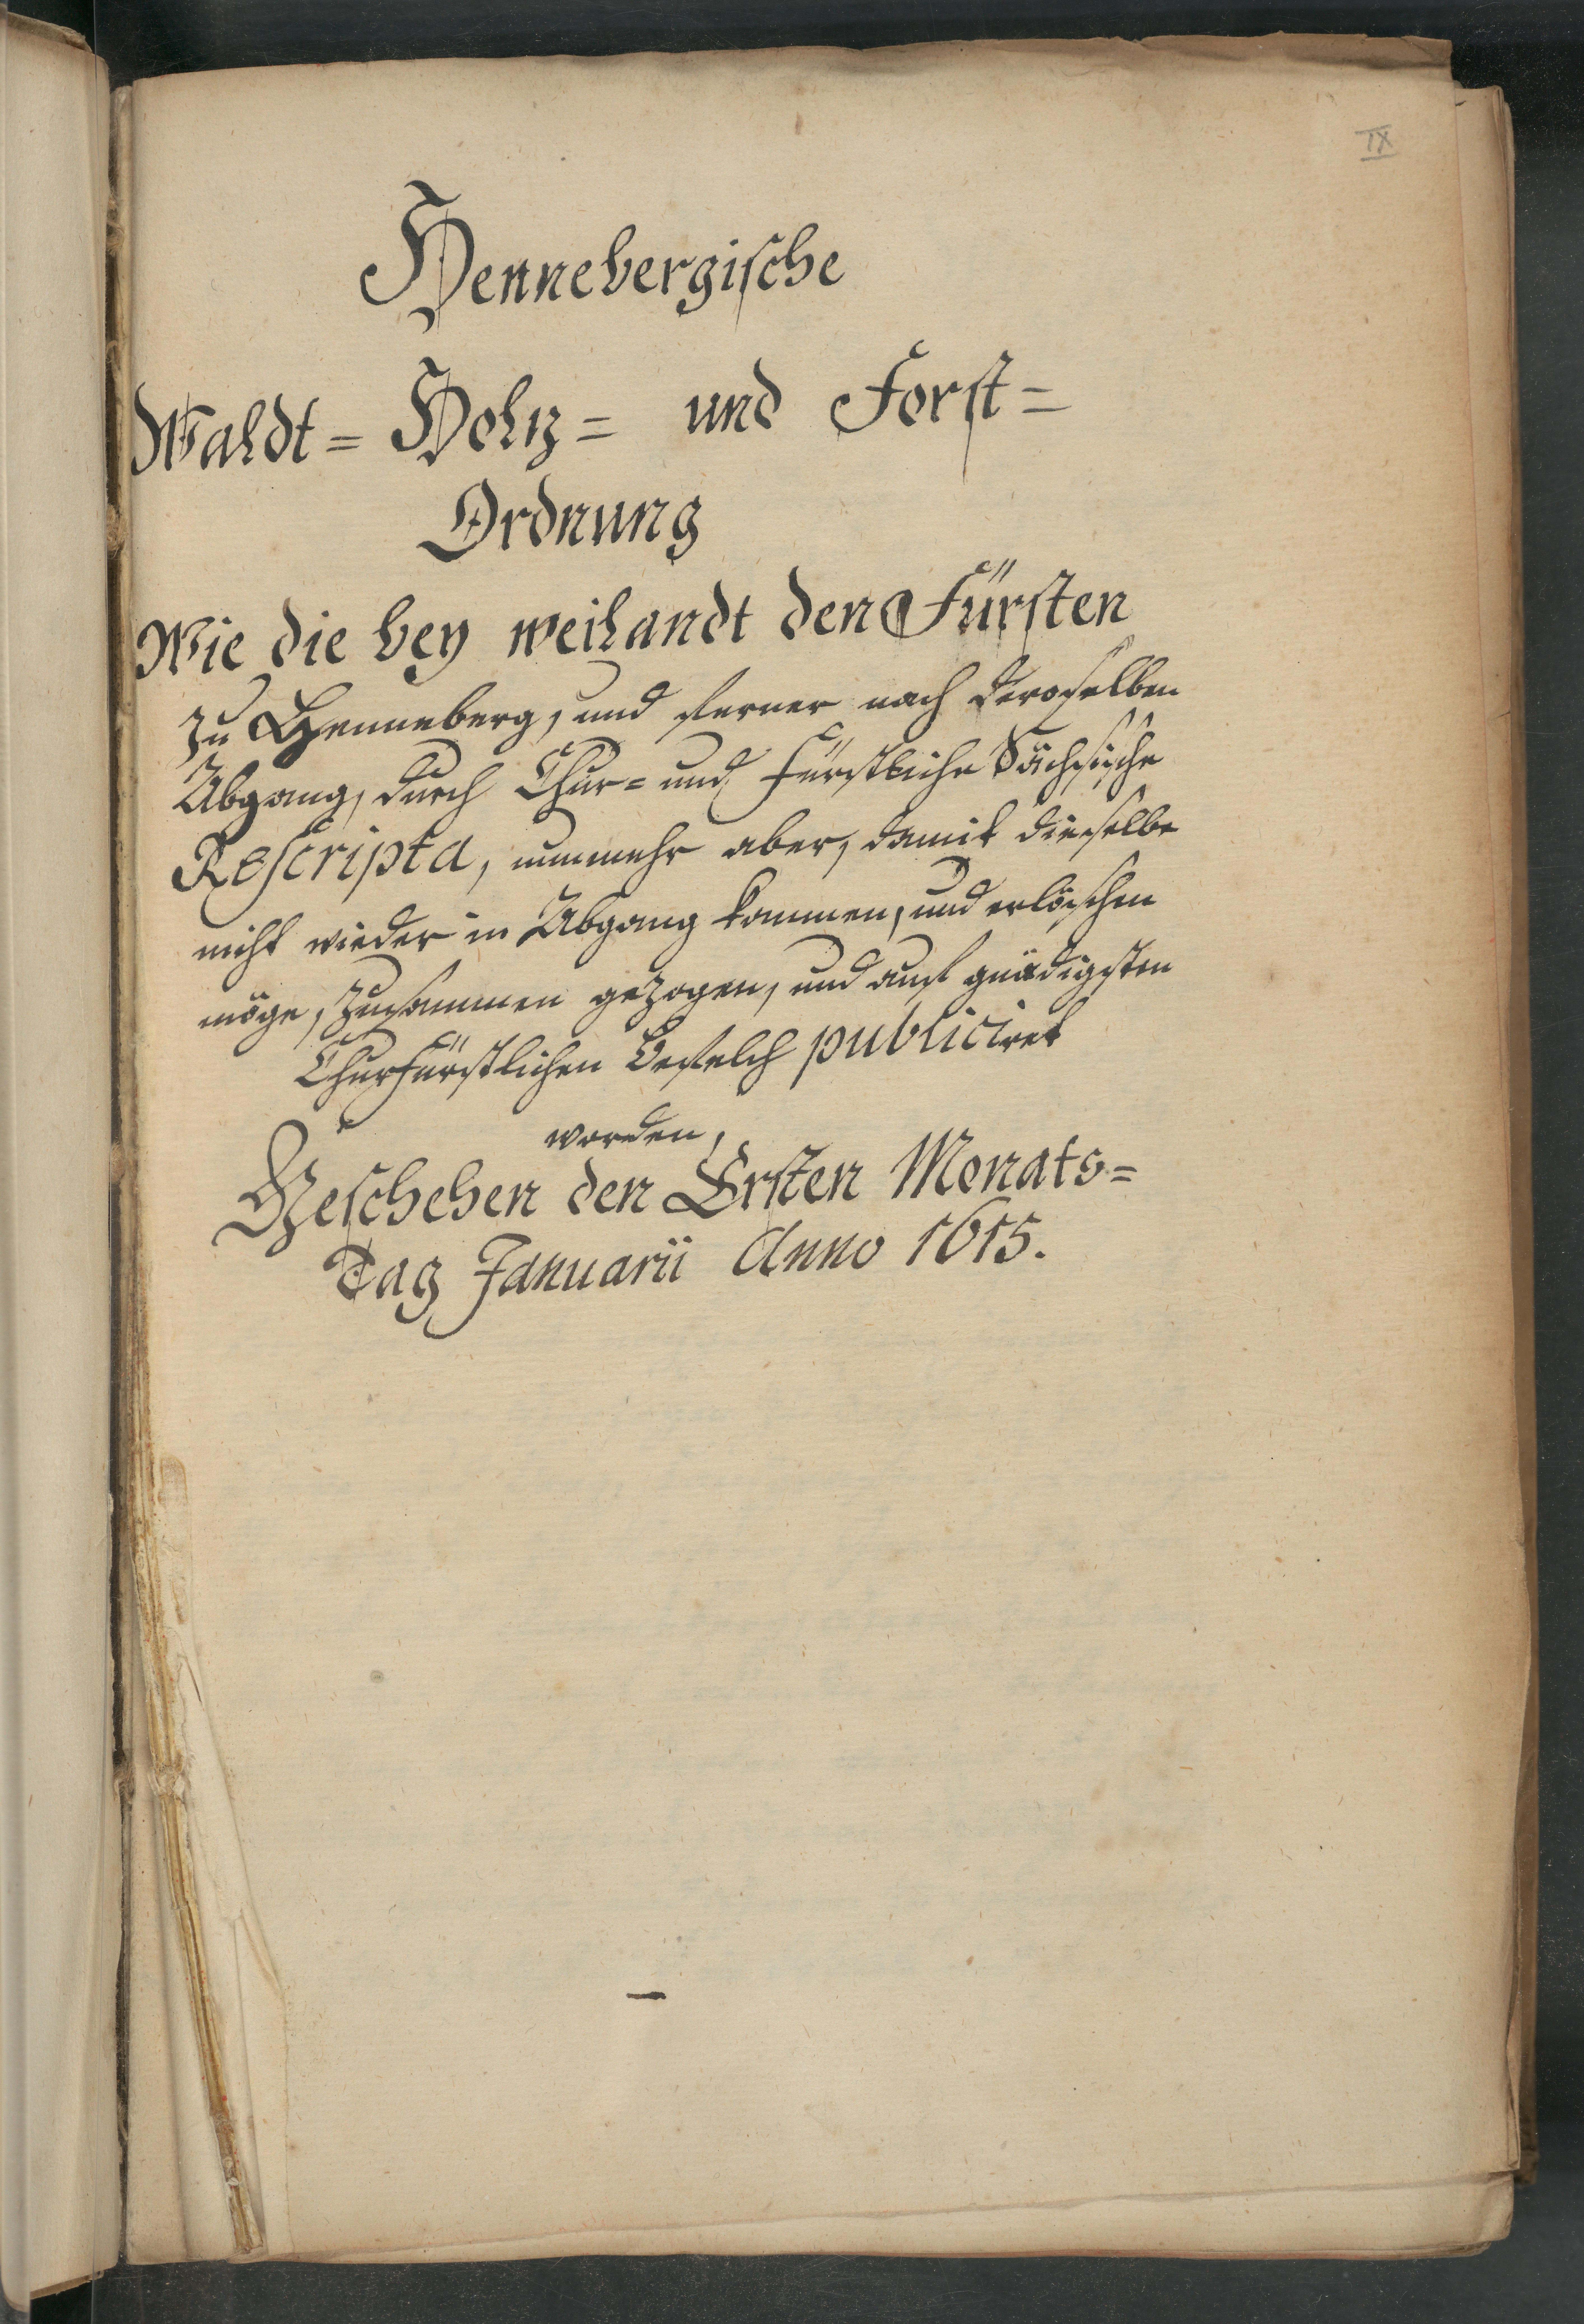 IX
Hennebergische
Waldt= Holtz= und Forst=
Ordnung
Wie die bey weilandt den Fürsten
zu Henneberg, und ferner nach deroselben
Abgang, durch Chur= und Fürstliche Sächsische
Rescripta, nunmehr aber, damit dieselbe
nicht wieder in Abgang kommen, und erlöschen
möge, zusammen gezogen, und auf gnädigsten
Churfürstlichen Befelch publiciret
worden,
Geschehen den Ersten Monats=
Tag Januarii Anno 1615.